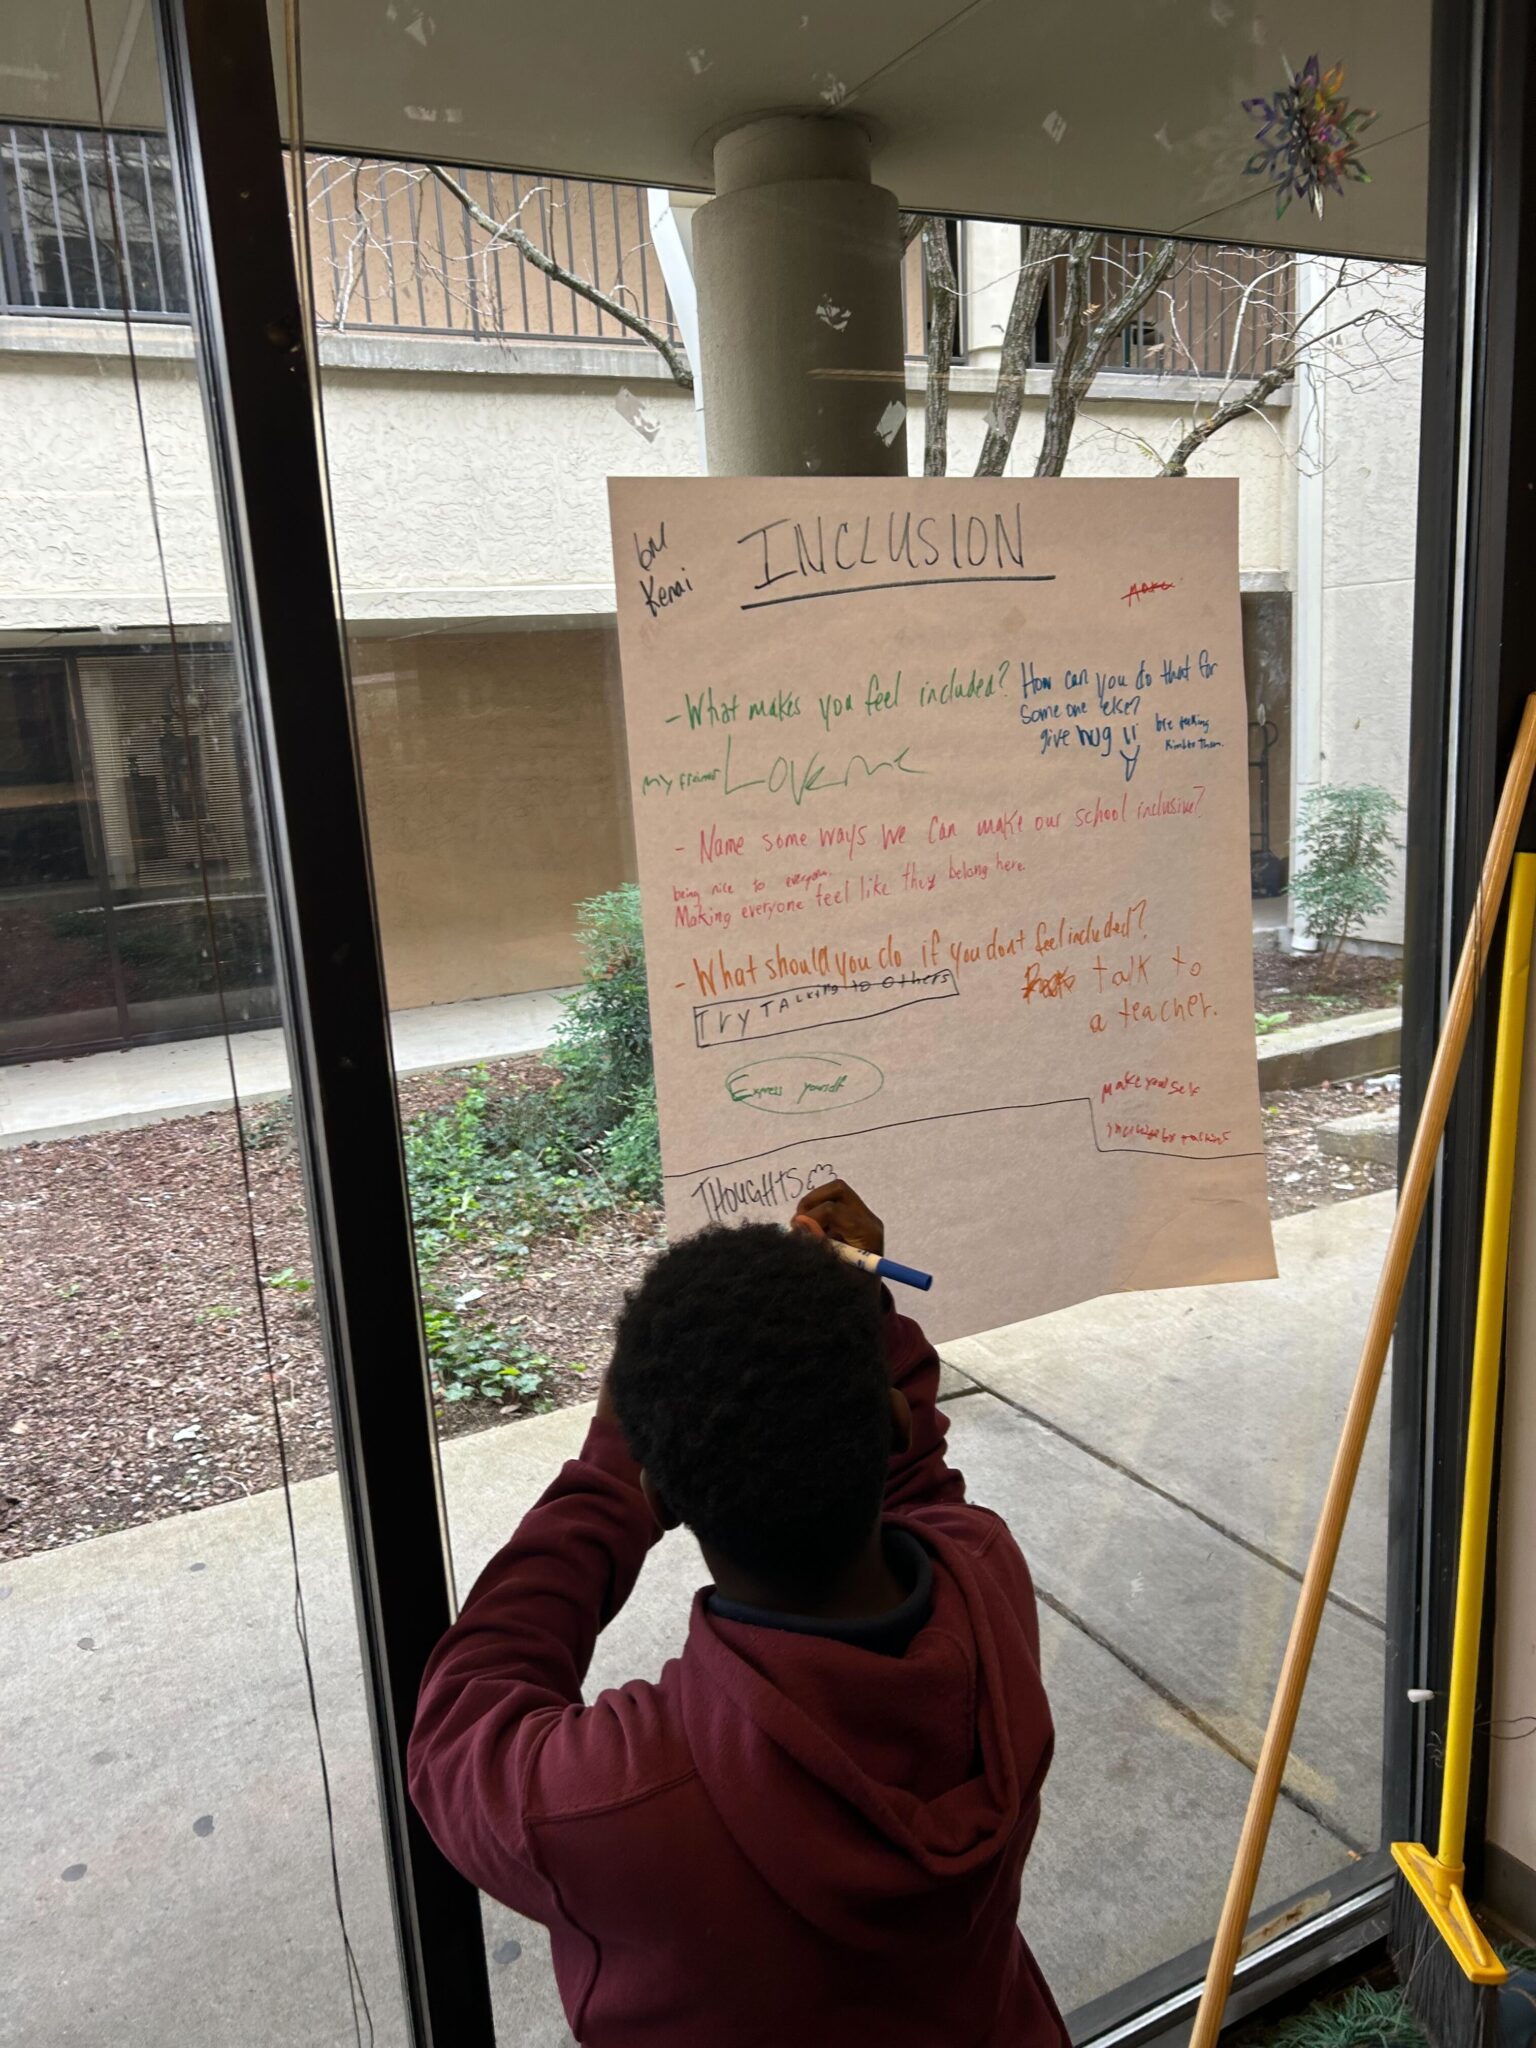 by
Kenai
INCLUSION
- What makes you feel included?
How can you do that for
some one else?
give hug
my
Love me
- Name some ways we can make our school inclusive?
being nice to everyone.
Making everyone feel like they belong here.
- What should you do if you dont feel included?
Try TALking to Others
talk to
a teacher.
Express yourself
make your self
THOUGHTS